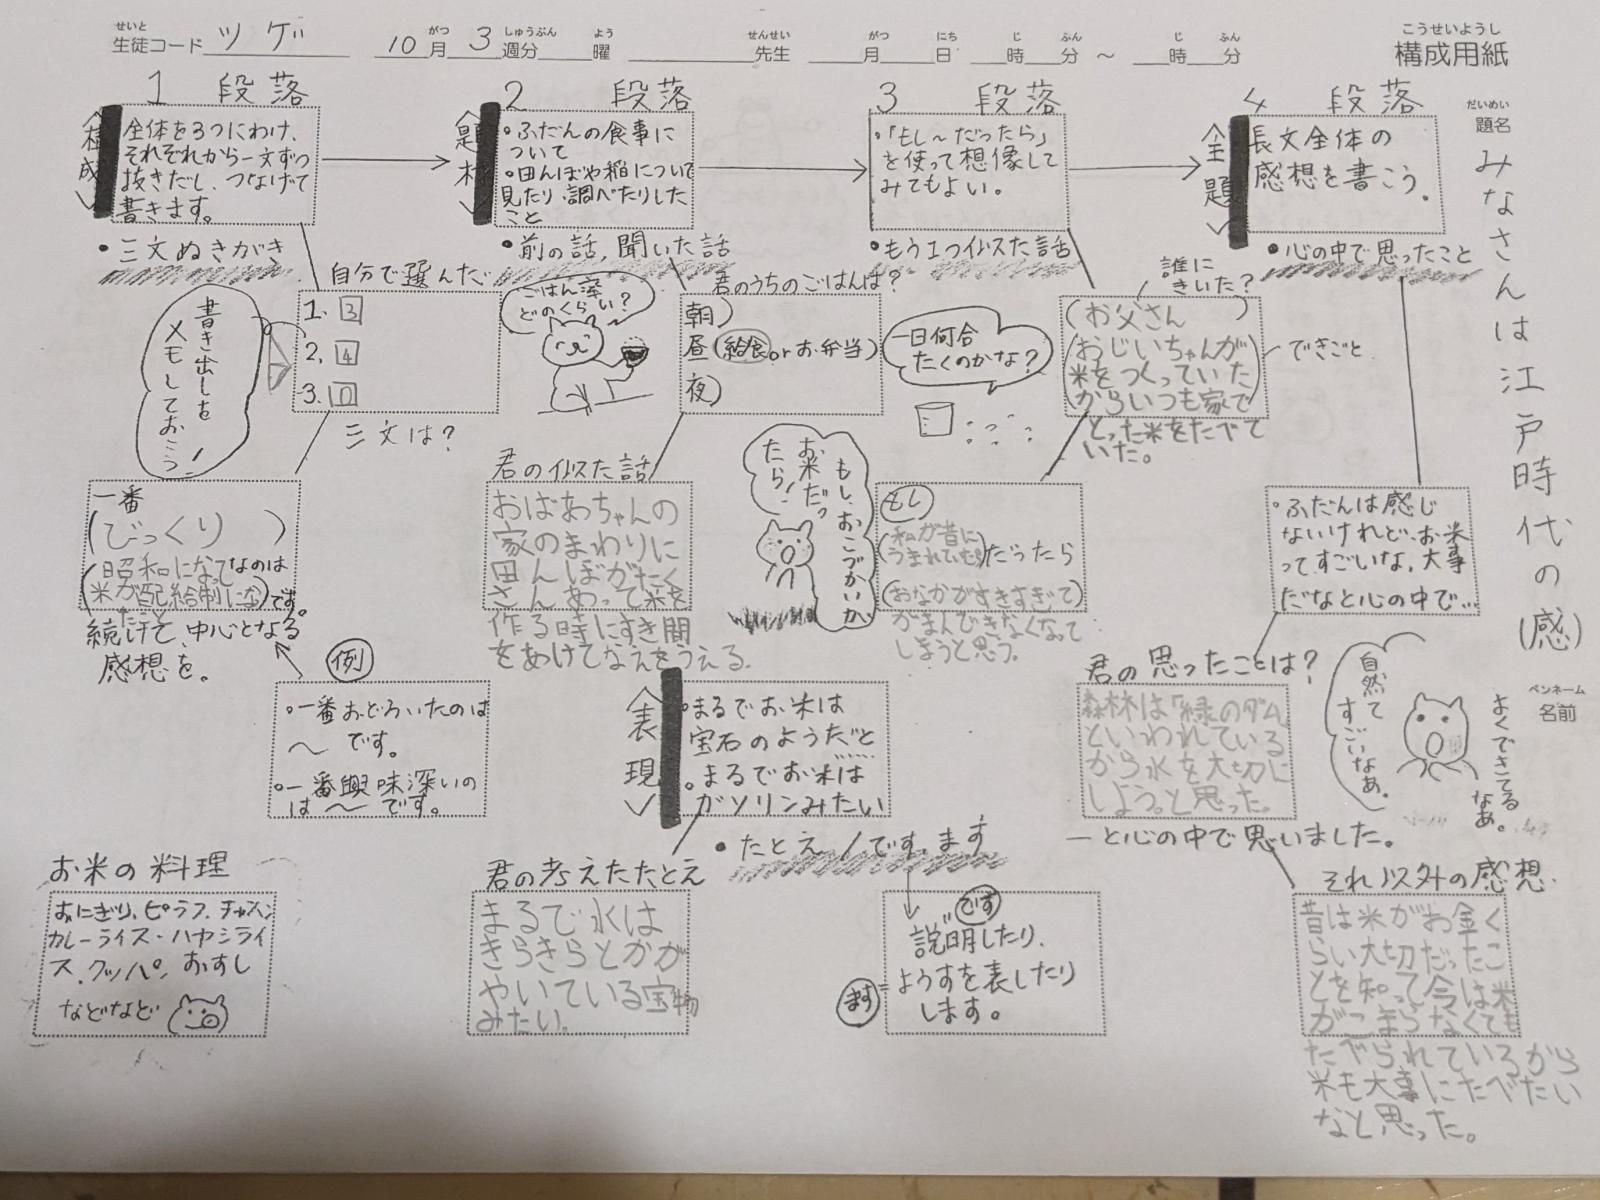 せいと
生徒コード ツゲ
10 月 3 週分 曜
がつ しゅうぶん よう
せんせい
先生
がつ にち じ ふん じ ふん
月 日 時 分 ～ 時 分
こうせいようし
構成用紙
だいめい
題名
みなさんは江戸時代の(感)
ペンネーム
名前
1 段落
<構成>
全体を3つにわけ、
それぞれから一文ずつ
抜きだし、つなげて
書きます。
・三文ぬきがき
自分で選んだ
1. 3
2. 4
3. 0
三文は?
書き出しを
メモしておこう!
一番
(びっくり)
(昭和になってなのは
米が配給制にな)です。
続けて、中心となる
感想を。
例
・一番おどろいたのは
～です。
・一番興味深いの
は～です。
お米の料理
おにぎり、ピラフ、チャーハン
カレーライス・ハヤシライ
ス、クッパ、おすし
などなど
2 段落
<題材>
・ふだんの食事に
ついて
・田んぼや稲について
見たり、調べたりした
こと
・前の話、聞いた話
ごはん茶
どのくらい?
君のうちのごはんは?
朝)
昼(給食orお弁当)
夜)
君の似た話
おばあちゃんの
家のまわりに
田んぼがたく
さんあって米を
作る時にすき間
をあけてなえをうえる.
<表現>
・まるでお米は
宝石のようだと
・まるでお米は
ガソリンみたい
・たとえ/です、ます
君の考えたたとえ
まるで水は
きらきらとかが
やいている宝物
みたい.
です
説明したり、
ます
ようすを表したり
します。
3 段落
・「もし～だったら」
を使って想像して
みてもよい。
・もう1つ似た話
一日何合
たくのかな?
誰に
きいた?
(お父さん)
(おじいちゃんが
米をつくっていた
からいつも家で
とった米をたべて
いた。
できごと
もし、おこづかいが
お米だっ
たら!
もし
(私が昔に
うまれていた)だったら
(おなかがすきすぎて)
がまんできなくなって
しまうと思う。
4 段落
<全題>
長文全体の
感想を書こう.
・心の中で思ったこと
・ふだんは感じ
ないけれど、お米
ってすごいな、大事
だなと心の中で…
君の思ったことは?
森林は「緑のダム
といわれている
から水を大切に
しよう。と思った。
―と心の中で思いました。
自然て
すごいなぁ。
よくできてる
なぁ。
それ以外の感想.
昔は米がお金く
らい大切だったこ
とを知って今は米
がこまらなくても
たべられているから
米も大事にたべたい
なと思った。